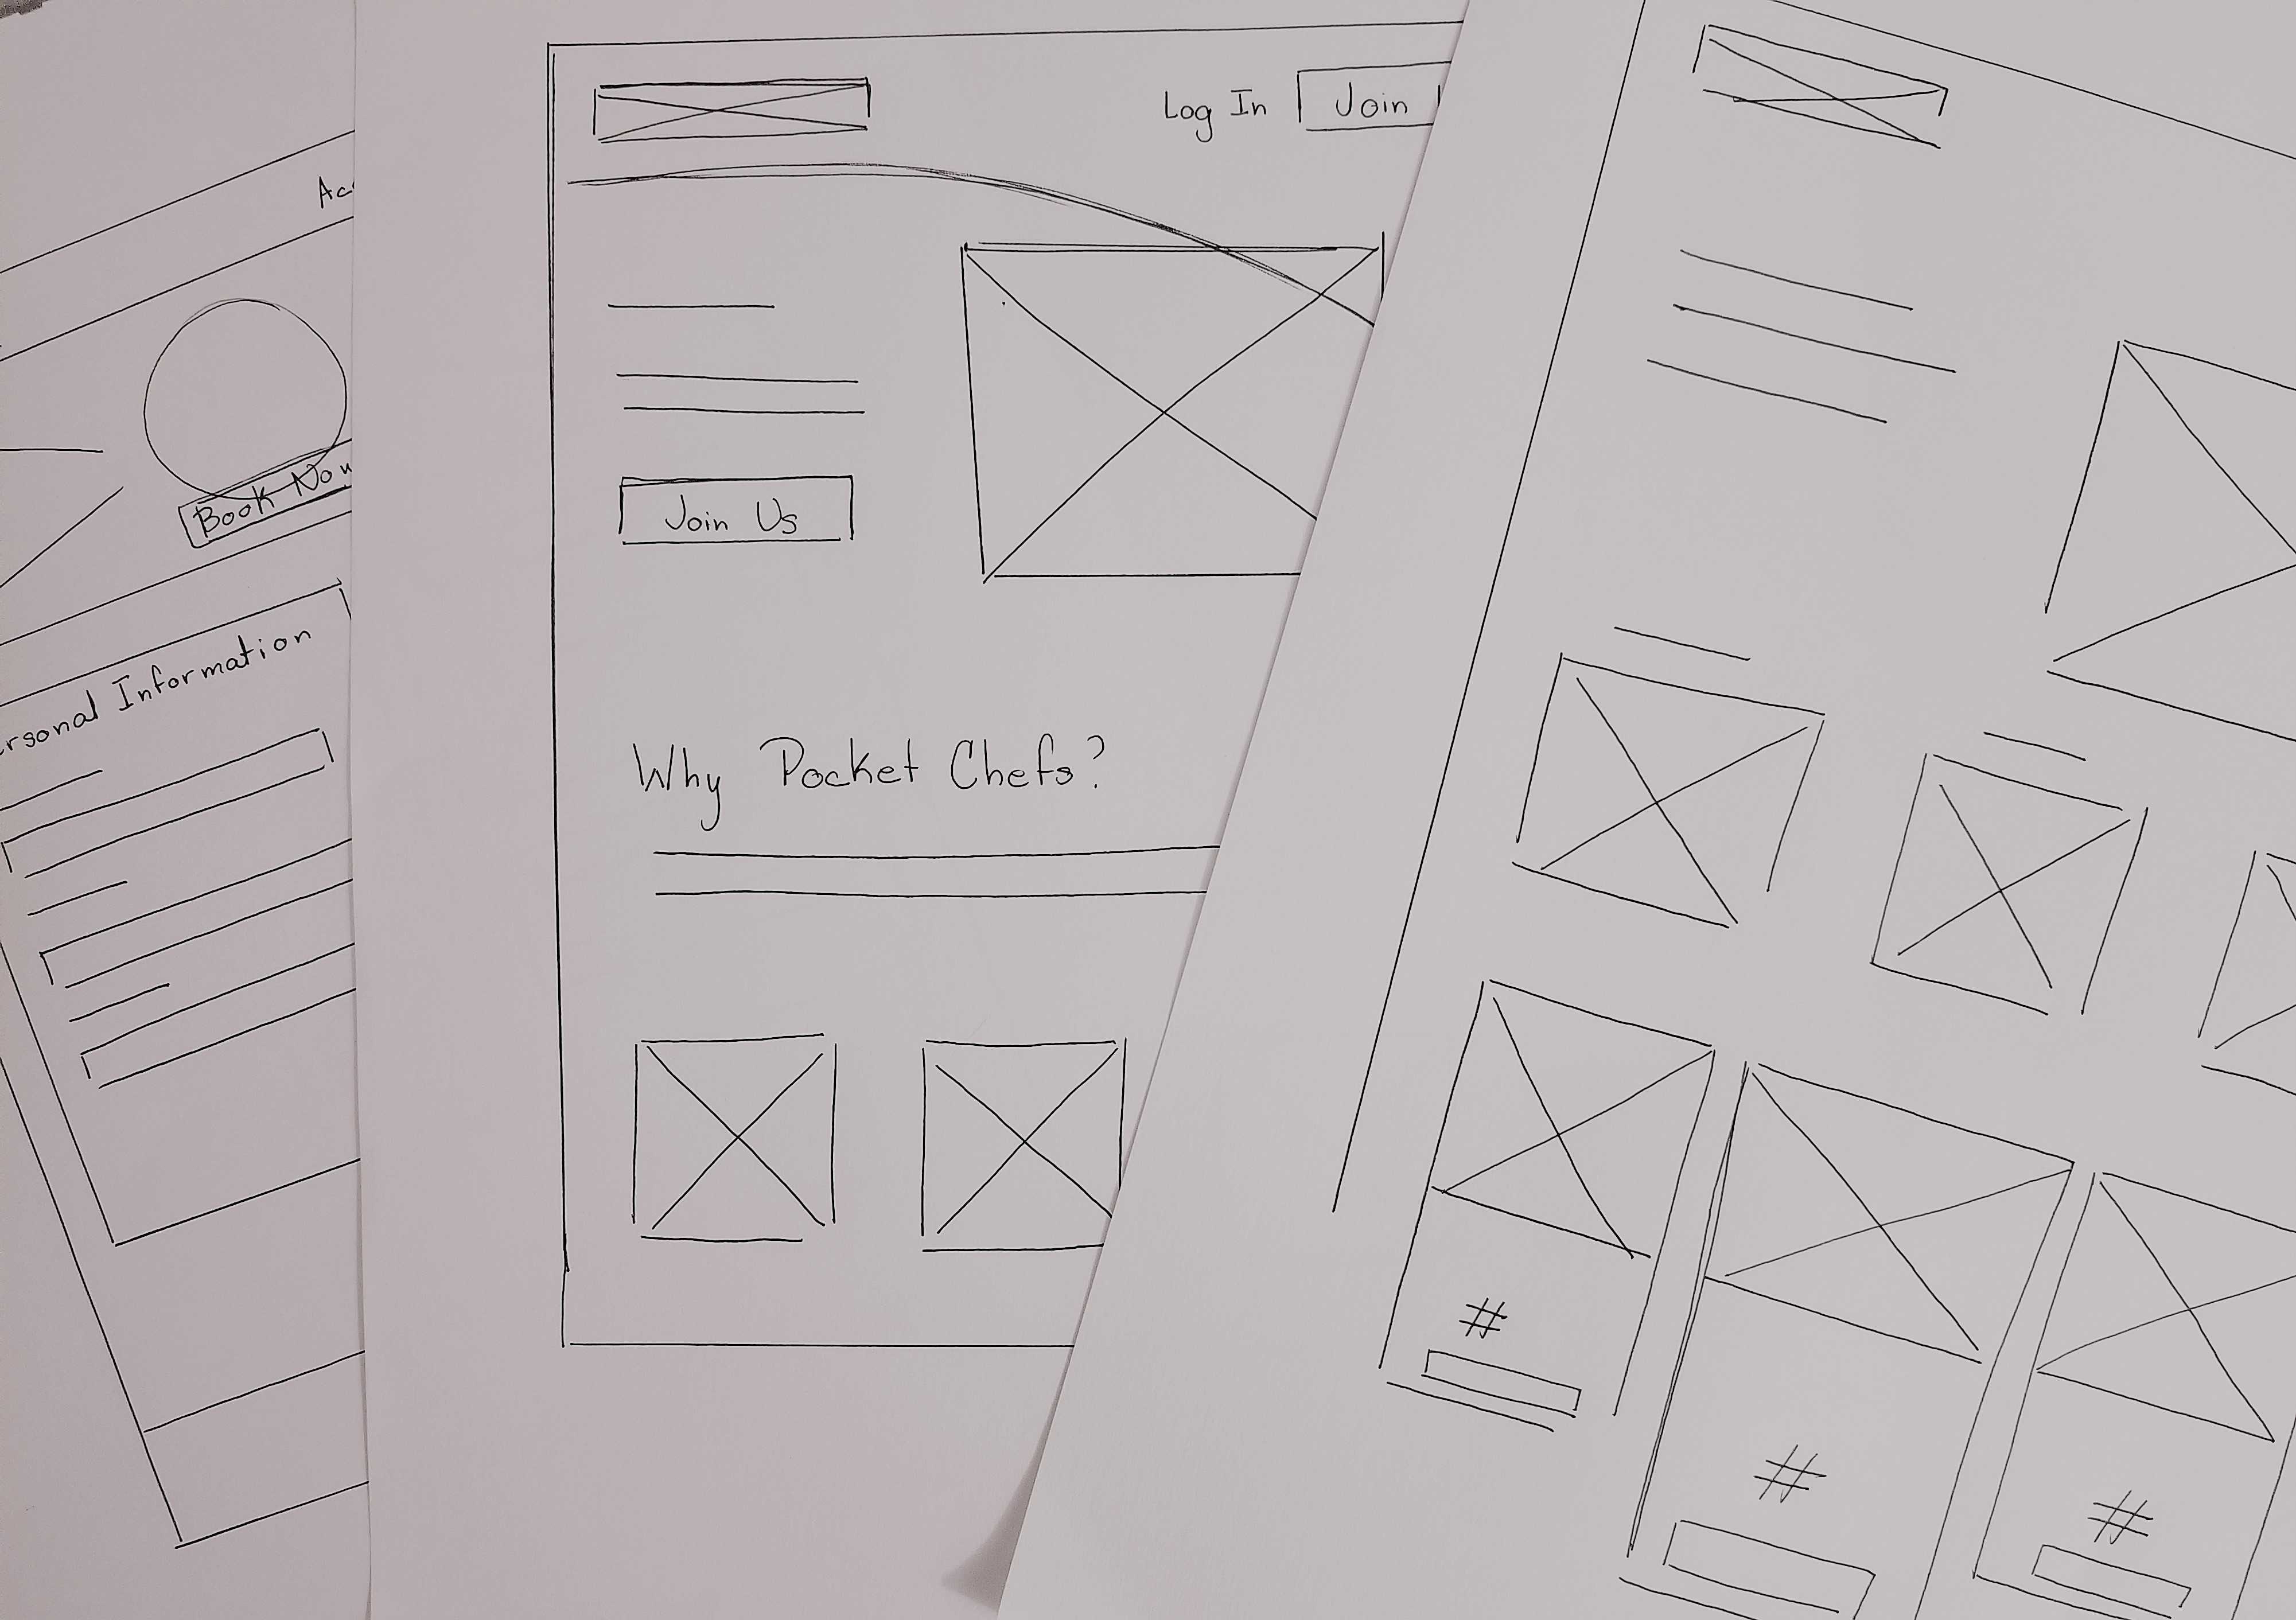 Ac
Book Now
rsonal Information
Log In
Join
Join Us
Why Pocket Chefs?
#
#
#